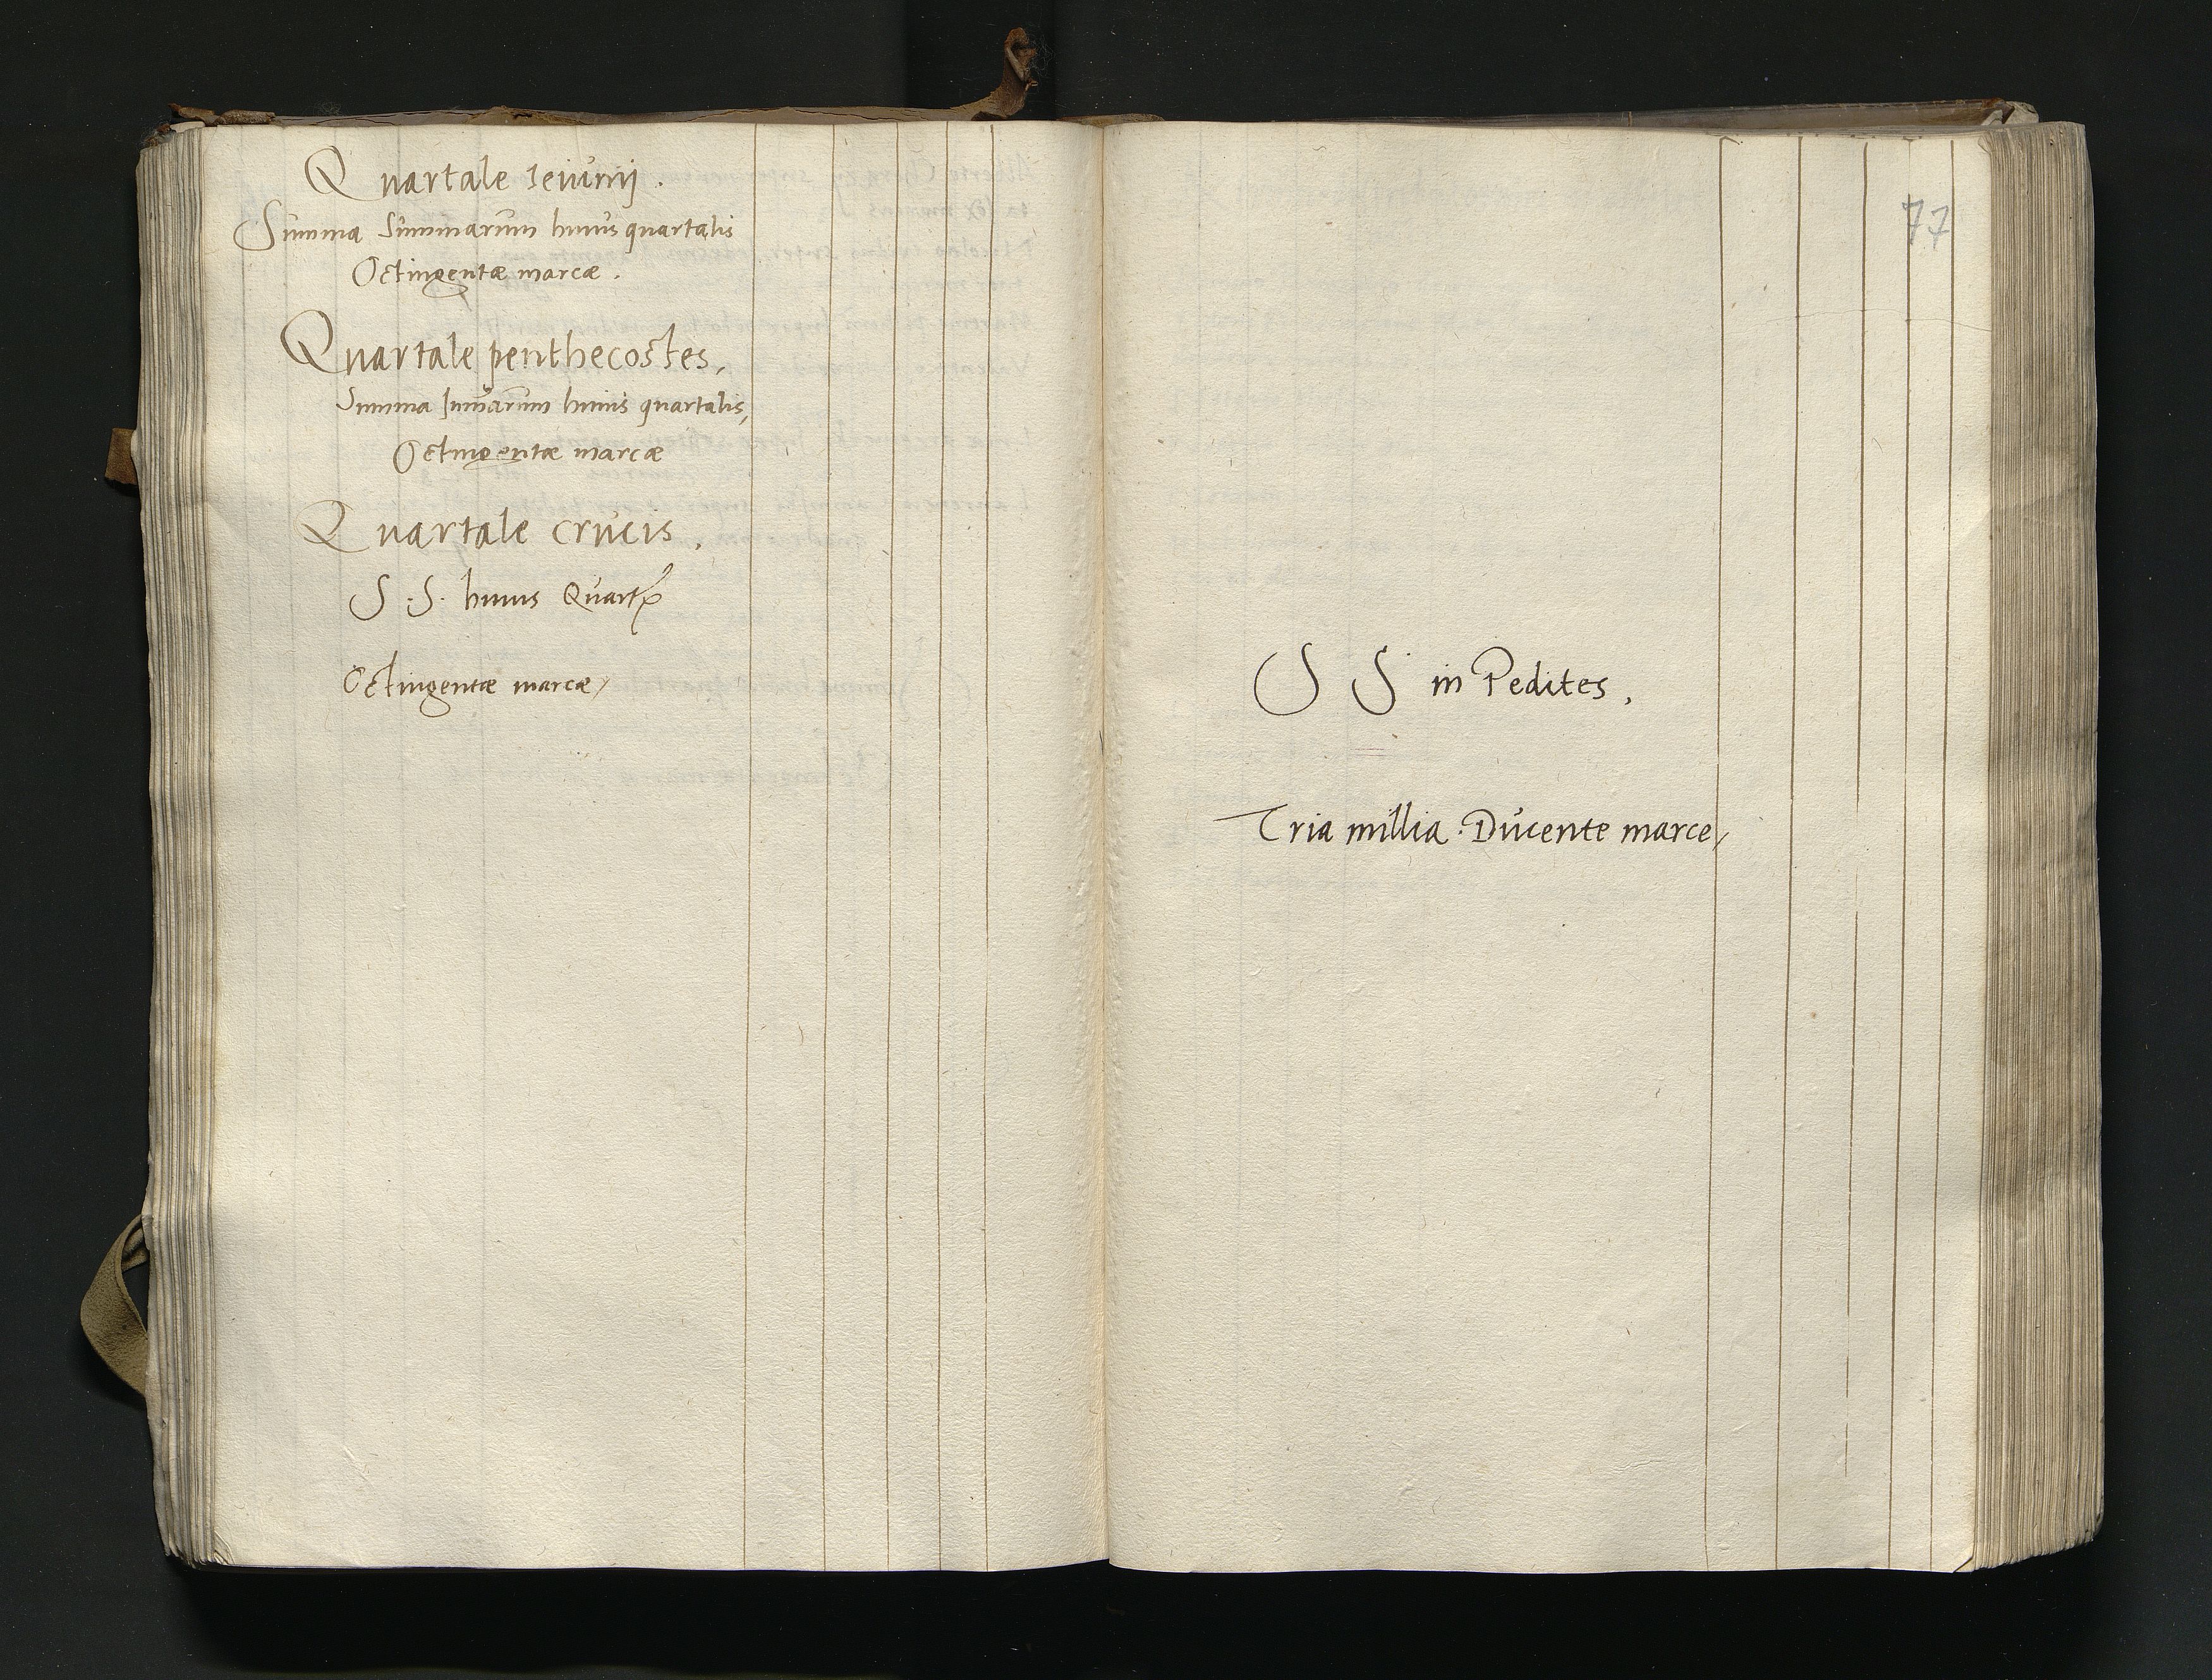 Quartale Ieiunij.
Summa Summarum huius quartalis
Octingentæ marcæ.
Quartale penthecostes,
Summa summarum huius quartalis,
Octingentæ marcæ
Quartale crucis,
S. S. huius
Octingentæ marcæ/
77
S S in Pedites,
Tria millia Ducente marce/